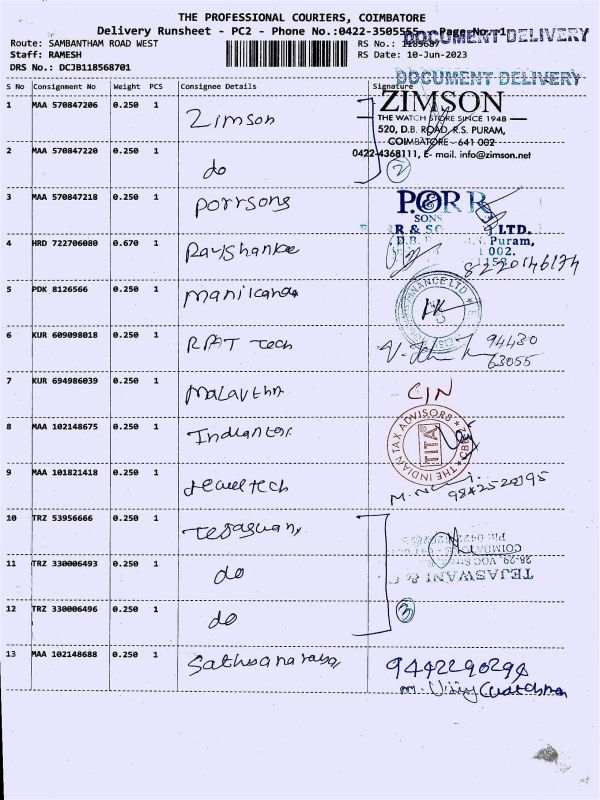 THE PROFESSIONAL COURIERS, COIMBATORE
Delivery Runsheet - PC2 - Phone No.:0422-3505555 Page No. 1
DOCUMENT DELIVERY
Route: SAMBANTHAM ROAD WEST RS No.:
Staff: RAMESH RS Date: 10-Jun-2023
DRS No.: DCJB118568701
DOCUMENT DELIVERY
S No Consignment No Weight PCS Consignee Details Signature
1 MAA 570847206 0.250 1 Zimson
ZIMSON
THE WATCH STORE SINCE 1948
520, D.B. ROAD, R.S. PURAM,
COIMBATORE - 641 002
0422-4368111, E- mail. info@zimson.net
2 MAA 570847220 0.250 1 do 2
3 MAA 570847218 0.250 1 Porrsons
P.ORR
SONS
LTD.
Puram,
002.
4 HRD 722706080 0.670 1 8220146174
5 PDK 8126566 0.250 1 Manikanda
FINANCE LTD
6 KUR 609098018 0.250 1 RPAT Tech
94430
63055
7 KUR 694986039 0.250 1
C/N
8 MAA 102148675 0.250 1
THE INDIAN TAX ADVISORS
TITA
9 MAA 101821418 0.250 1 Jeweltech
10 TRZ 53956666 0.250 1
COIMBA
28-29, VOC
TEJASWANI &
11 TRZ 330006493 0.250 1 do
12 TRZ 330006496 0.250 1 do 3
13 MAA 102148688 0.250 1